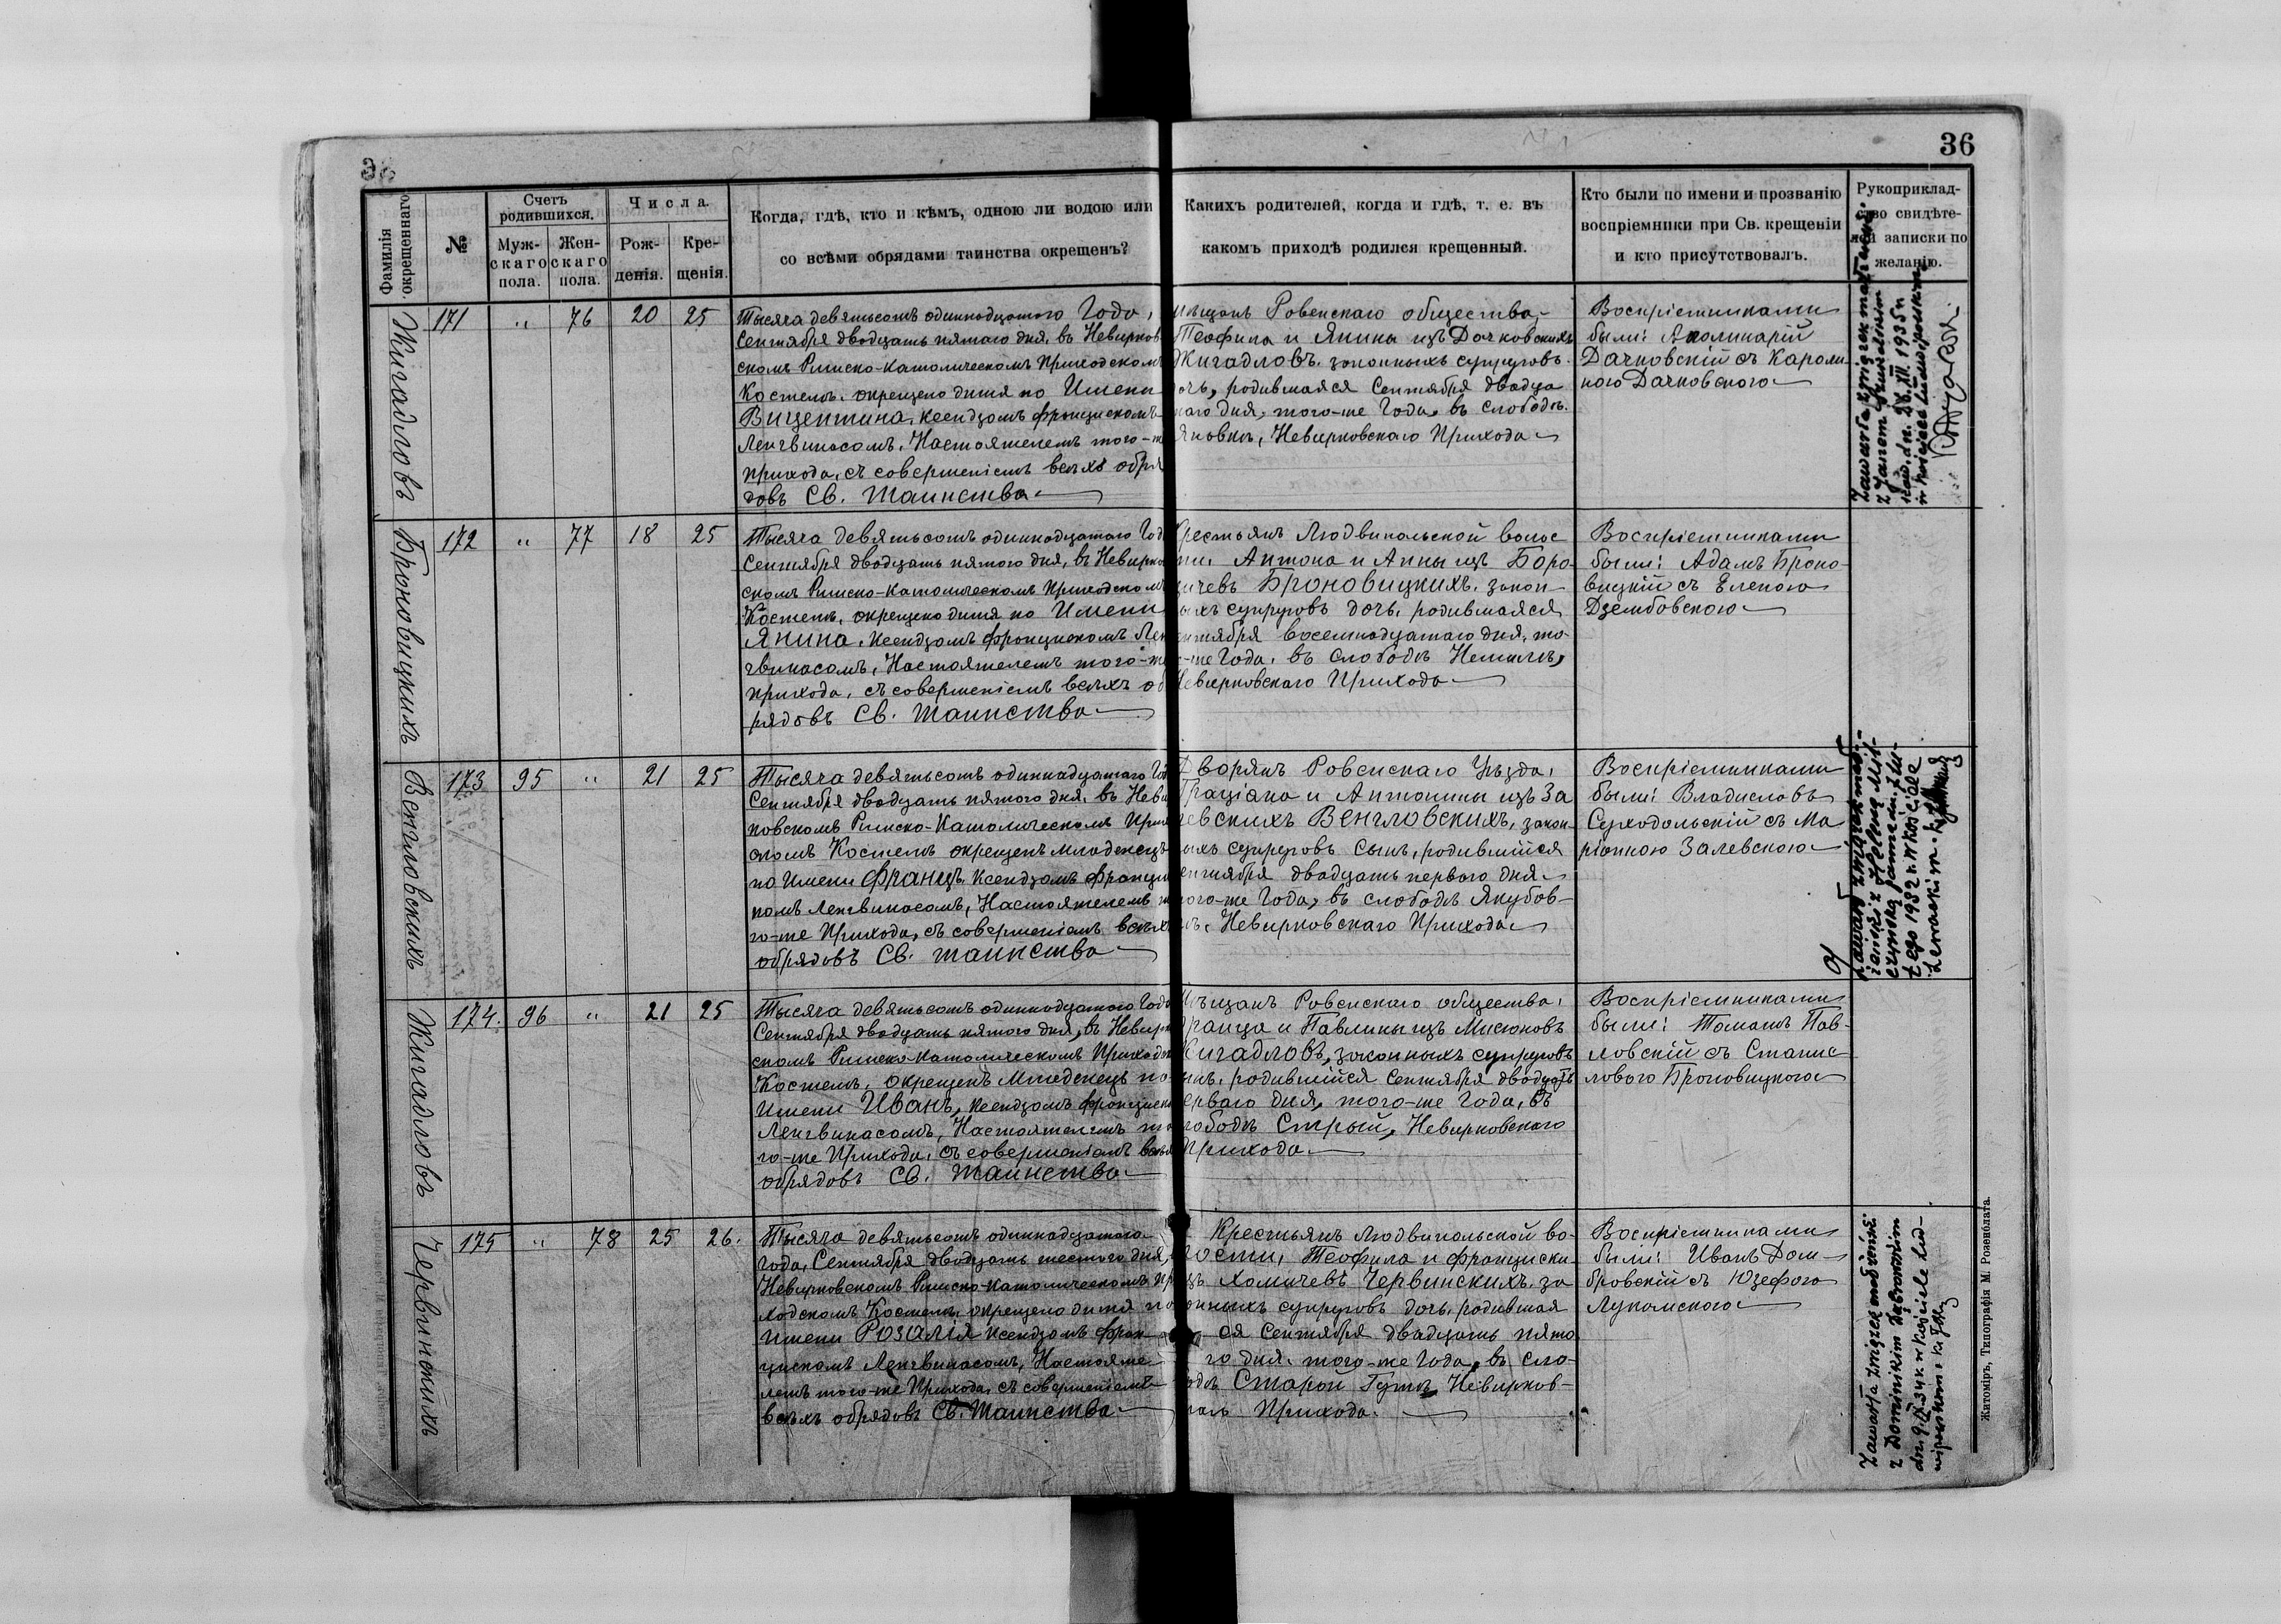 36
Фамилія окрещеннаго.
№
Счетъ родившихся.
Муж-
скаго
пола.
Жен-
скаго
пола.
Числа.
Рож-
денія.
Кре-
щенія.
Когда, гдѣ, кто и кѣмъ, одною ли водою или
со всѣми обрядами таинства окрещенъ?
Какихъ родителей, когда и гдѣ, т. е. въ
какомъ приходѣ родился крещенный.
Кто были по имени и прозванію
воспріемники при Св. крещеніи
и кто присутствовалъ.
Рукоприклад-
ство свидѣте-
лей записки по
желанію.
Жигадловъ
171 " 76 20 25
Тысяча девятьсотъ одиннадцатого Года,
Сентября двадцать пятаго дня, въ Невирков
скомъ Римско-Католическомъ Приходскомъ
Костелѣ, окрещено дитя по Имени
Вицентина, Ксендзомъ Францискомъ
Ленгвинасомъ, Настоятелемъ того-
прихода, съ совершеніемъ всѣхъ обря
довъ Св. таинства
мѣщанъ Ровенскаго общества,
Теофила и Янины изъ Дачковскихъ
Жигадловъ, законныхъ супруговъ
дочь, родившаяся Сентября двадца
таго дня, того-же Года, въ слободѣ
Яновкѣ, Невирковскаго Прихода
Воспріемниками
были: Аполинарій
Дачковскій съ Кароли
ною Дачковскою
Zawarła związek małżeń.
z Janem
dn. 26.XII 1935 r.
w kościele Ludwipolskim
Броновицкихъ
172 " 77 18 25
Тысяча девятьсотъ одиннадцатаго Год
Сентября двадцать пятого дня, въ Невирко
скомъ Римско-Католическомъ Приходском
Костелѣ, окрещено дитя по Имени
Янина, Ксендзомъ Францискомъ Лен
гвинасомъ, Настоятелемъ того-же
прихода, съ совершеніемъ всѣхъ об
рядовъ Св. таинства
Крестьянъ Людвипольской волос
ти, Антона и Анны изъ Боро-
вичевъ Броновицкихъ, закон-
ыхъ супруговъ дочь, родившаяся
ентября восемнадцатаго дня, то-
-же Года, въ слободѣ Немилѣ,
Невирковскаго Прихода
Воспріемниками
были: Адамъ Броно-
вицкій съ Еленою
Дзембовскою
Венгловскихъ
173 95 " 21 25
Тысяча девятьсотъ одиннадцатаго Год
Сентября двадцать пятого дня, въ Неви
ковскомъ Римско-Католическомъ Прих
скомъ Костелѣ окрещенъ младенецъ
по Имени Францъ, Ксендзомъ Францис
комъ Ленгвинасомъ, Настоятелемъ т
го-же Прихода, съ совершеніемъ всѣхъ
обрядовъ Св. таинства
Дворянъ Ровенскаго Уѣзда,
Граціана и Антонины изъ За
левскихъ Венгловскихъ, закон-
ыхъ супруговъ Сынъ, родившійся
ентября двадцать перваго дня
того-же Года, въ слободѣ Якубов-
кѣ, Невирковскаго Прихода
Воспріемниками
были: Владиславъ
Суходольскій съ Ма
ріанною Залевскою
Zawarł związek małż-
z Heleną
1932 r. w kościele
Жигадловъ
174. 96 " 21 25
Тысяча девятьсотъ одиннадцатого Года
Сентября двадцать пятого дня, въ Невирк
скомъ Римско-Католическомъ Приходск
Костелѣ, окрещенъ Младенецъ по
Имени Иванъ, Ксендзомъ Францискомъ
Ленгвинасомъ, Настоятелемъ то
го-же Прихода, съ совершеніемъ всѣхъ
обрядовъ Св. таинства
Мѣщанъ Ровенскаго общества,
Франца и Павлины изъ Мисюковъ
Жигадловъ, законныхъ супруговъ
сынъ, родившійся Сентября двадцать
перваго дня, того-же Года, въ
слободѣ Стрый, Невирковскаго
Прихода
Воспріемниками
были: Томашъ Пав-
ловскій съ Станис-
лавого Броновицкого
Червинскихъ
175 " 78 25 26.
Тысяча девятьсотъ одиннадцатаго
года, Сентября двадцать шестого дня,
Невирковскомъ Римско-Католическомъ Пр
ходскомъ Костелѣ, окрещено дитя по
Имени Розалія Ксендзомъ Фран-
цискомъ Ленгвинасомъ, Настояте-
лемъ того-же Прихода, съ совершеніемъ
всѣхъ обрядовъ Св. Таинства
Крестьянъ Людвипольской во-
лости, Теофила и Франциски
изъ Хомичевъ Червинскихъ, за
конныхъ супруговъ дочь, родившая
ся Сентября двадцать пято
го дня, того-же Года, въ сло-
бодѣ Старой Гутѣ, Невирков-
скаго Прихода.
Воспріемниками
были: Иванъ Дом-
бровскій съ Юзефого
Лукомского
Zawarła związek małżeńsk.
z Dominikiem Dąbrowskim
w kościele Lud-
wipolskim
Житоміръ, Типографія М. Розенблата.